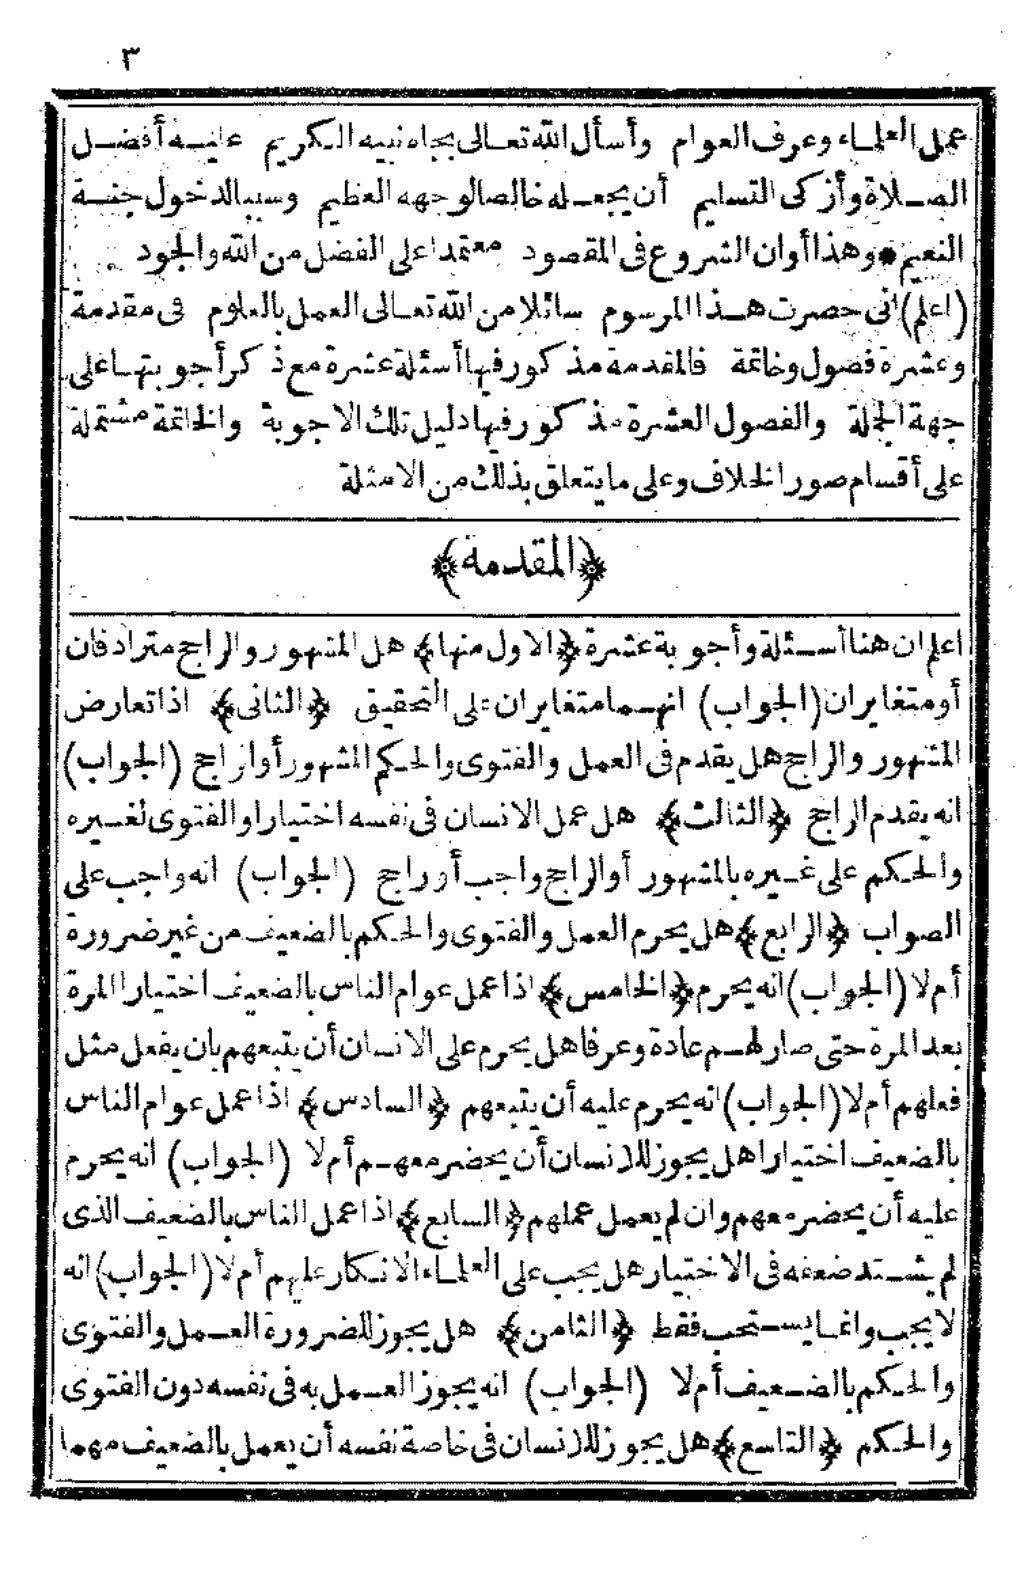 ٣
عمل العلماء وعرف العوام وأسأل الله تعالى بجاه نبيه الكريم عليه أفضل
الصلاة وأزكى التسليم أن يجعله خالصا لوجهه العظيم وسببا لدخول جنة
النعيم * وهذا أوان الشروع فى المقصود معتمدا على الفضل من الله والجود
(اعلم) انى حصرت هذا المرسوم سائلا من الله تعالى العمل بالعلوم فى مقدمة
وعشرة فصول وخاتمة فالمقدمة مذكور فيها أسئلة عشرة مع ذكر أجوبتها على
جهة الجملة والفصول العشرة مذكور فيها دليل تلك الاجوبة والخاتمة مشتملة
على أقسام صور الخلاف وعلى ما يتعلق بذلك من الامثلة
﴿المقدمة﴾
اعلم ان هنا أسئلة وأجوبة عشرة ﴿الاول منها﴾ هل المشهور والراجح مترادفان
أو متغايران (الجواب) انهما متغايران على التحقيق ﴿الثانى﴾ اذا تعارض
المشهور والراجح هل يقدم فى العمل والفتوى والحكم المشهور أو الراجح (الجواب)
انه يقدم الراجح ﴿الثالث﴾ هل عمل الانسان فى نفسه اختيارا والفتوى لغيره
والحكم على غيره بالمشهور أو الراجح واجب أو راجح (الجواب) انه واجب على
الصواب ﴿الرابع﴾ هل يحرم العمل والفتوى والحكم بالضعيف من غير ضرورة
أم لا (الجواب) انه يحرم ﴿الخامس﴾ اذا عمل عوام الناس بالضعيف اختيارا المرة
بعد المرة حتى صار لهم عادة وعرفا هل يحرم على الانسان أن يتبعهم بان يفعل مثل
فعلهم أم لا (الجواب) انه يحرم عليه أن يتبعهم ﴿السادس﴾ اذا عمل عوام الناس
بالضعيف اختيارا هل يجوز للانسان أن يحضر معهم أم لا (الجواب) انه يحرم
عليه أن يحضر معهم وان لم يعمل عملهم ﴿السابع﴾ اذا عمل الناس بالضعيف الذى
لم يشتد ضعفه فى الاختيار هل يجب على العلماء الانكار عليهم أم لا (الجواب) انه
لا يجب وانما يستحب فقط ﴿الثامن﴾ هل يجوز للضرورة العمل والفتوى
والحكم بالضعيف أم لا (الجواب) انه يجوز العمل به فى نفسه دون الفتوى
والحكم ﴿التاسع﴾ هل يجوز للانسان فى خاصة نفسه أن يعمل بالضعيف مهما